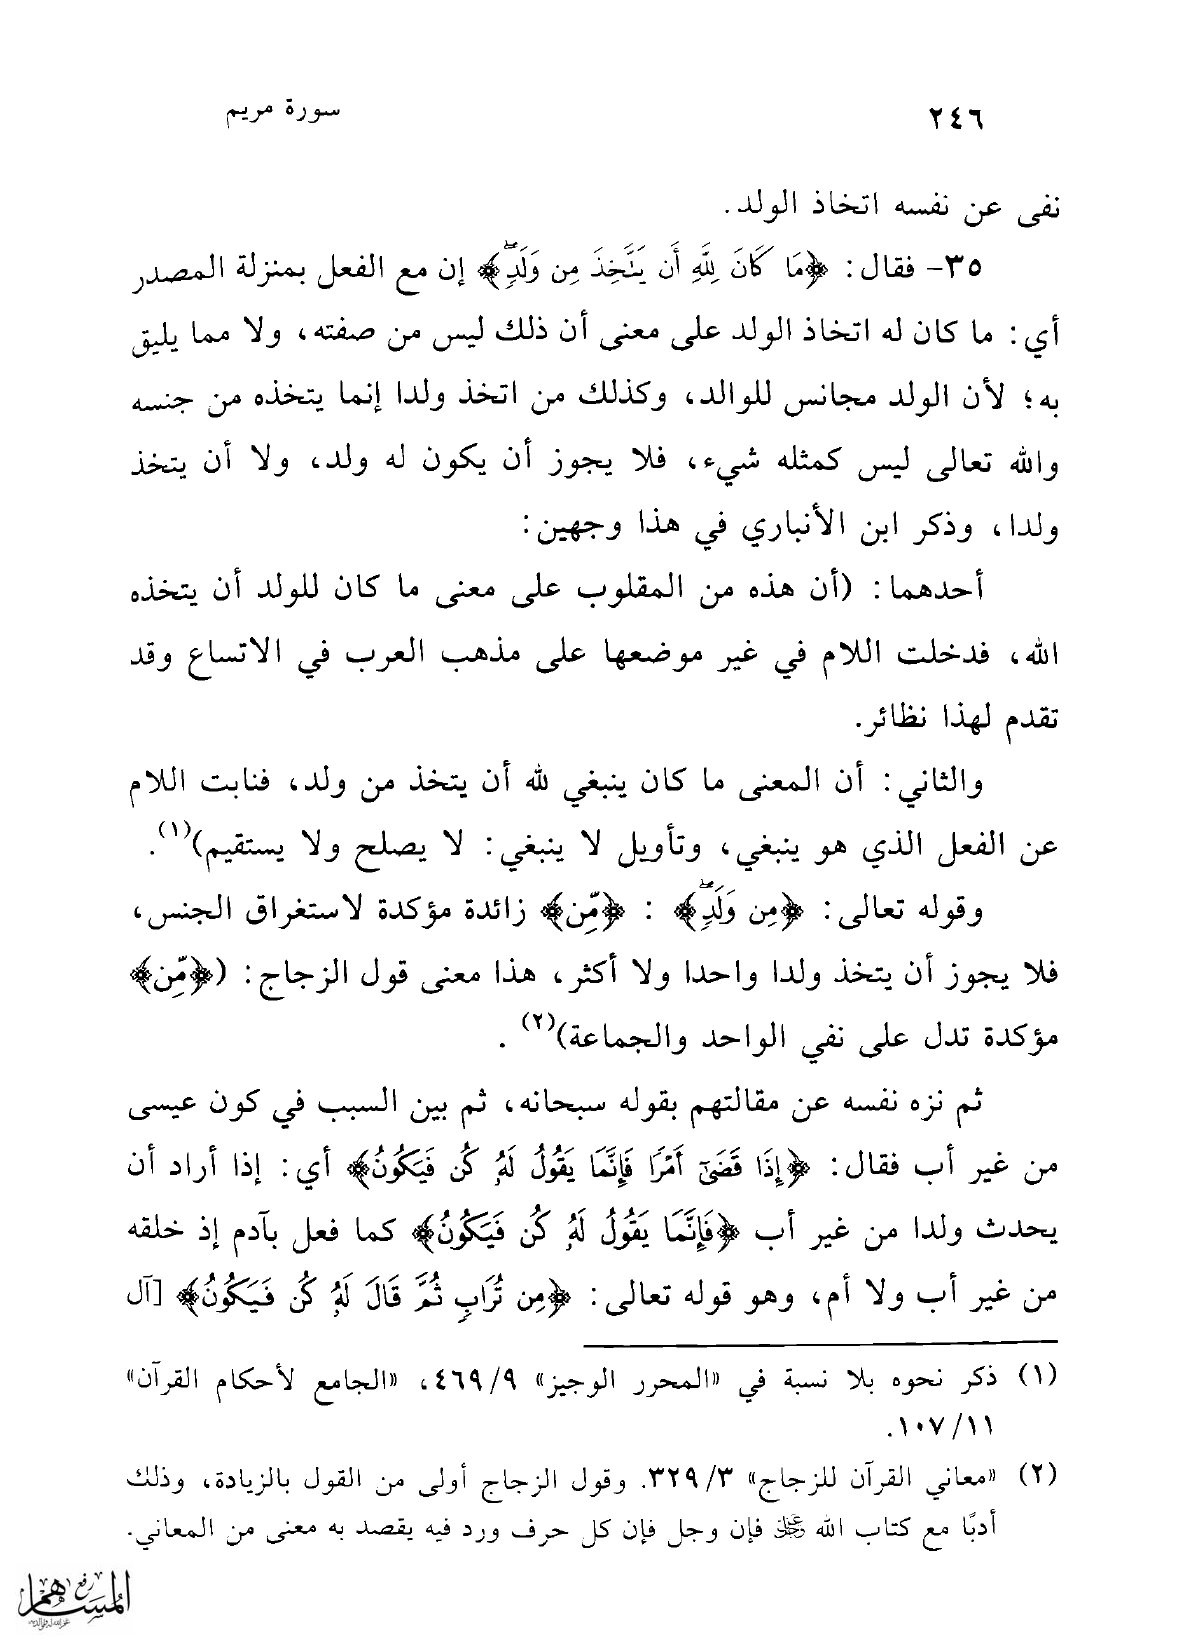 ٢٤٦
سورة مريم
نفى عن نفسه اتخاذ الولد.
٣٥- فقال: ﴿مَا كَانَ لِلَّهِ أَن يَتَّخِذَ مِن وَلَدٍ﴾ إن مع الفعل بمنزلة المصدر
أي: ما كان له اتخاذ الولد على معنى أن ذلك ليس من صفته، ولا مما يليق
به؛ لأن الولد مجانس للوالد، وكذلك من اتخذ ولدا إنما يتخذه من جنسه
والله تعالى ليس كمثله شيء، فلا يجوز أن يكون له ولد، ولا أن يتخذ
ولدا، وذكر ابن الأنباري في هذا وجهين:
أحدهما: (أن هذه من المقلوب على معنى ما كان للولد أن يتخذه
الله، فدخلت اللام في غير موضعها على مذهب العرب في الاتساع وقد
تقدم لهذا نظائر.
والثاني: أن المعنى ما كان ينبغي لله أن يتخذ من ولد، فنابت اللام
عن الفعل الذي هو ينبغي، وتأويل لا ينبغي: لا يصلح ولا يستقيم)(١).
وقوله تعالى: ﴿مِن وَلَدٍ﴾ : ﴿مِّن﴾ زائدة مؤكدة لاستغراق الجنس،
فلا يجوز أن يتخذ ولدا واحدا ولا أكثر، هذا معنى قول الزجاج: (﴿مِّن﴾
مؤكدة تدل على نفي الواحد والجماعة)(٢) .
ثم نزه نفسه عن مقالتهم بقوله سبحانه، ثم بين السبب في كون عيسى
من غير أب فقال: ﴿إِذَا قَضَىٰٓ أَمْرًا فَإِنَّمَا يَقُولُ لَهُۥ كُن فَيَكُونُ﴾ أي: إذا أراد أن
يحدث ولدا من غير أب ﴿فَإِنَّمَا يَقُولُ لَهُۥ كُن فَيَكُونُ﴾ كما فعل بآدم إذ خلقه
من غير أب ولا أم، وهو قوله تعالى: ﴿مِن تُرَابٍ ثُمَّ قَالَ لَهُۥ كُن فَيَكُونُ﴾ [آل
(١) ذكر نحوه بلا نسبة في «المحرر الوجيز» ٩/ ٤٦٩، «الجامع لأحكام القرآن»
١١/ ١٠٧.
(٢) «معاني القرآن للزجاج» ٣/ ٣٢٩. وقول الزجاج أولى من القول بالزيادة، وذلك
أدبًا مع كتاب الله ﷻ فإن وجل فإن كل حرف ورد فيه يقصد به معنى من المعاني.